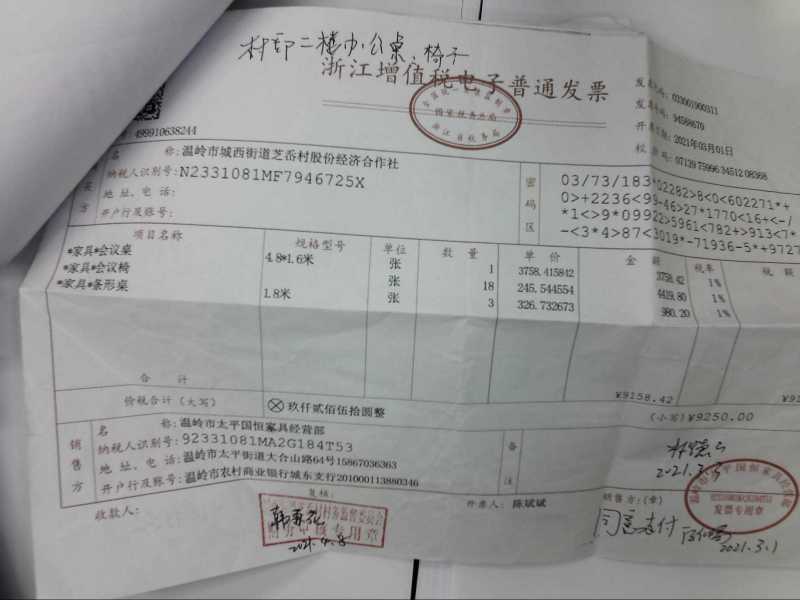 二楼办公桌、椅子
浙江增值税电子普通发票
全国统一发票监制章
国家税务总局
浙江省税务局
发票代码: 033001900311
发票号码: 94588670
开票日期: 2021年03月01日
校验码: 07139 75966 34512 08368
499910638244
购买方
名称:温岭市城西街道芝岙村股份经济合作社
纳税人识别号:N2331081MF7946725X
地址、电话:
开户行及账号:
密码区
03/73/183*02282>8<0<602271*+
0>+2236<99-46>27*1770<16+<-/
*1<>9*09922>5961<782+>913<7*
-<3*4>87<3019*-71936-5*+9727
项目名称 规格型号 单位 数量 单价 金额 税率 税额
*家具*会议桌 4.8*1.6米 张 1 3758.415842 3758.42 1%
*家具*会议椅 张 18 245.544554 4419.80 1%
*家具*条形桌 1.8米 张 3 326.732673 980.20 1%
合计 ¥9158.42
价税合计(大写) ⊗玖仟贰佰伍拾圆整 (小写)¥9250.00
销售方
名称:温岭市太平国恒家具经营部
纳税人识别号:92331081MA2G184T53
地址、电话:温岭市太平街道大合山路64号15867036363
开户行及账号:温岭市农村商业银行城东支行201000113880346
备注
2021.3.5
收款人:
复核:
开票人: 陈斌斌
销售方:(章)
温岭市太平国恒家具经营部
发票专用章
2021.4.8
同意支付
2021.3.1